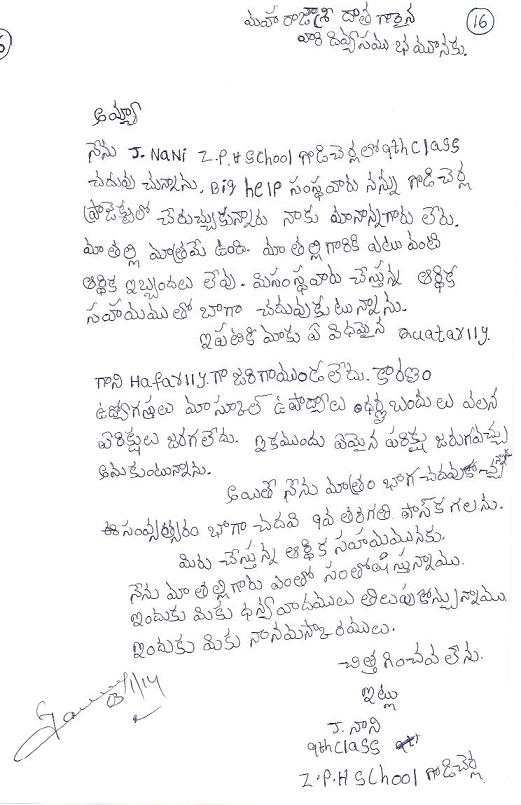 16
మహారాజశ్రీ దాత గారైన
వారి దివ్యసము ఖమూనకు.
అయ్యా
నేను J. NANI Z.P.H SCHOOL గొడిచెర్లలో 9th Class
చదువు చున్నాను. Big help సంస్థవారు నన్ను గొడిచెర్ల
ప్రాజెక్టులో చేరుచ్చుకున్నారు నాకు మానాన్నగారు లేరు.
మా తల్లి మాత్రమే ఉంది. మా తల్లిగారికి ఎటు వంటి
ఆర్థిక ఇబ్బందులు లేవు. మిసంస్థవారు చేస్తున్న ఆర్థిక
సహాయము తో బాగా చదువుకుటున్నాను.
ఇపటికి మాకు ఏ విధమైన Quatarlly.
గాని Hafarlly. గా జరిగాముండలేదు. కారణం
ఉద్యోగస్తులు మా స్కూల్ ఉపాద్యాలు ధర్న బందు లు వలన
పరిక్షులు జరగలేదు. ఇకముందు ఏమైన పరిక్షు జరుగవచ్చు
అనుకుంటున్నాను.
అయితే నేను మాత్రం భాగ చదవుకొచ్చు
ఈ సంవ్సత్సరం భాగా చదవి 9వ తరగతి పాస్క గలను.
మిరు చేస్తున్న ఆర్థిక సహాయమునకు.
నేను మా తల్లిగారు ఎంతో సంతోషిస్తున్నాము.
ఇందుకు మికు ధన్యవాదములు తెలుపుకోన్చున్నాము.
ఇందుకు మికు నానమస్కారములు.
చిత్తగించవలేను.
ఇట్లు
J. నాని
9th Class
Z.P.H SCHOOL గొడిచెర్ల
8/1/14